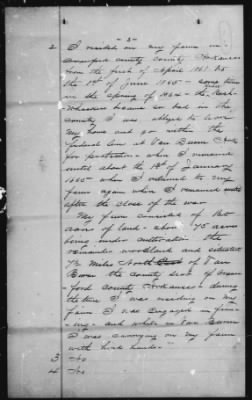 -2-
2 I resided on my farm in
Crawford county county Arkansas
from the first of April 1861 to
the 1st of June 1865 - some time
in the spring of 1864 - the Bush-
whackers became so bad in the
country I was obliged to leave
my home and go within the
federal lines at Van Buren Ark
for protection - where I remained
until about the 1st of January
1865 - when I returned to my
farm again where I remained until
after the close of the war.
My farm consisted of 160
acres of land - about 75 acres
being under cultivation - the
remainder woodland and situated
7½ miles North of Van
Buren the county seat of Craw-
ford county Arkansas - during
the time I was residing on my
farm I was engaged in farm-
ing - and while in Van Buren
I was carrying on my farm
with hired hands -"
3 No
4 No